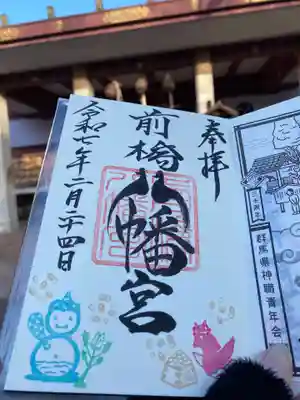 奉拝
前橋八幡宮
令和七年二月二十四日
群馬県神職青年会